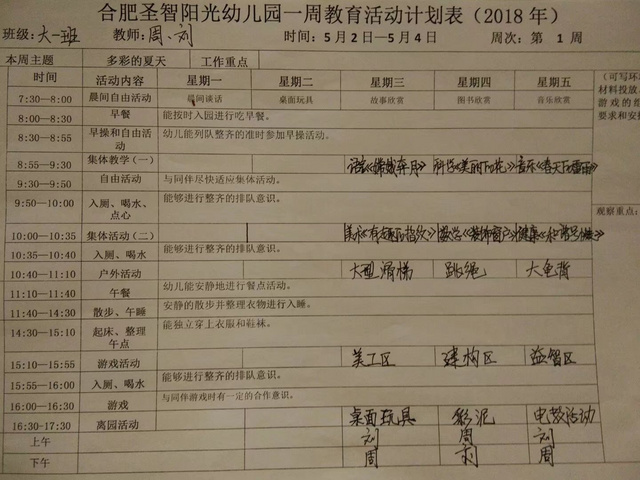 合肥圣智阳光幼儿园一周教育活动计划表（2018 年）
班级：大一班 教师：周、刘 时间：5 月 2 日—5 月 4 日 周次：第 1 周
本周主题 多彩的夏天 工作重点
时间 活动内容 星期一 星期二 星期三 星期四 星期五
7:30—8:00 晨间自由活动 晨间谈话 桌面玩具 故事欣赏 图书欣赏 音乐欣赏
8:00—8:30 早餐 能按时入园进行吃早餐。
8:30—8:55 早操和自由活动 幼儿能列队整齐的准时参加早操活动。
8:55—9:30 集体教学（一） 科学《美丽的花》 音乐《春天
9:30—9:50 自由活动 与同伴尽快适应集体活动。
9:50—10:00 入厕、喝水、点心 能够进行整齐的排队意识。
10:00—10:35 集体活动（二） 美术《有趣的指纹》 数学 健康
10:35—10:40 入厕、喝水 能够进行整齐的排队意识。
10:40—11:10 户外活动 大型滑梯 跳绳 大龟背
11:10—11:40 午餐 幼儿能安静地进行餐点活动。
11:40—14:30 散步、午睡 安静的散步并整理衣物进行入睡。
14:30—15:10 起床、整理午点 能独立穿上衣服和鞋袜。
15:10—15:55 游戏活动 美工区 建构区 益智区
15:55—16:00 入厕、喝水 能够进行整齐的排队意识。
16:00—16:30 游戏 与同伴游戏时有一定的合作意识。
16:30-17:30 离园活动 桌面玩具 彩泥 电教活动
上午 刘 周 刘
下午 周 刘 周
（可写环
材料投放
游戏的组
要求和安排
观察重点：